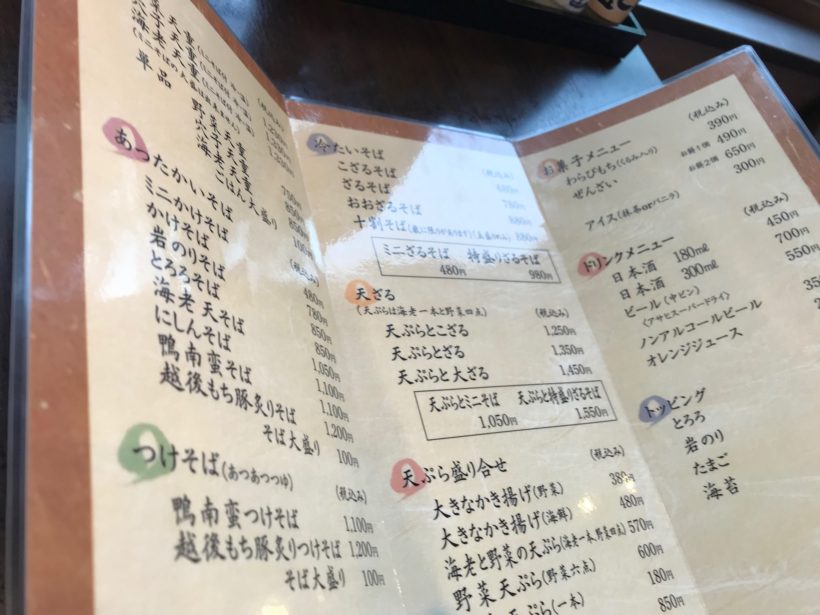 単品
野菜天重
穴子天重
海老天重
ごはん大盛り
あったかいそば
ミニかけそば
かけそば 480円
岩のりそば 780円
とろろそば 850円
海老天そば 850円
にしんそば 1,050円
鴨南蛮そば 1,100円
越後もち豚炙りそば 1,200円
そば大盛り 100円
つけそば(あつあつつゆ) (税込み)
鴨南蛮つけそば 1,100円
越後もち豚炙りつけそば 1,200円
そば大盛り 100円
冷たいそば (税込み)
こざるそば 680円
ざるそば 780円
おおざるそば 880円
十割そば 880円
ミニざるそば 特盛りざるそば
480円 980円
天ざる
(天ぷらは海老一本と野菜四点) (税込み)
天ぷらとこざる 1,250円
天ぷらとざる 1,350円
天ぷらと大ざる 1,450円
天ぷらとミニそば 天ぷらと特盛りざるそば
1,050円 1,550円
天ぷら盛り合せ (税込み)
大きなかき揚げ(野菜) 380円
大きなかき揚げ(海鮮) 480円
海老と野菜の天ぷら(海老一本、野菜四点) 570円
野菜天ぷら(野菜六点) 600円
天ぷら(一本) 180円
850円
お菓子メニュー (税込み)
わらびもち(くるみ入り) 390円
ぜんざい お餅1個 490円
お餅2個 650円
アイス(抹茶orバニラ) 300円
ドリンクメニュー (税込み)
日本酒 180㎖ 450円
日本酒 300㎖ 700円
ビール(中ビン) 550円
(アサヒスーパードライ)
ノンアルコールビール
オレンジジュース
トッピング
とろろ
岩のり
たまご
海苔